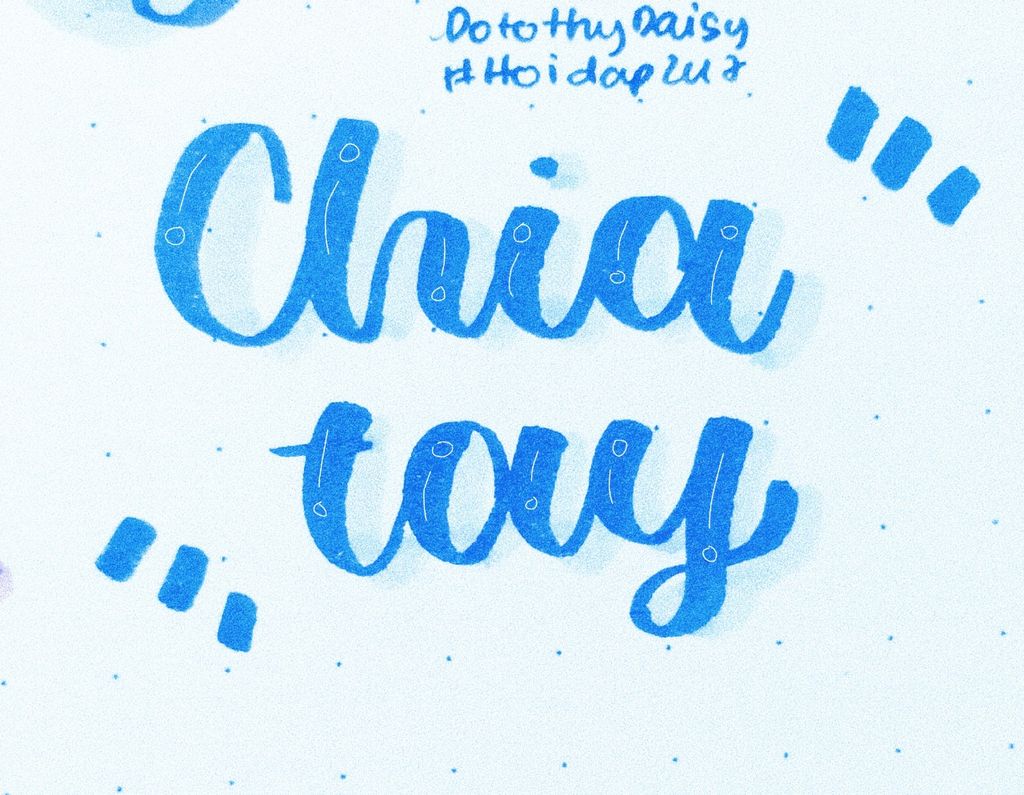 DorothyDaisy
#Hoidap247
Chia
tay